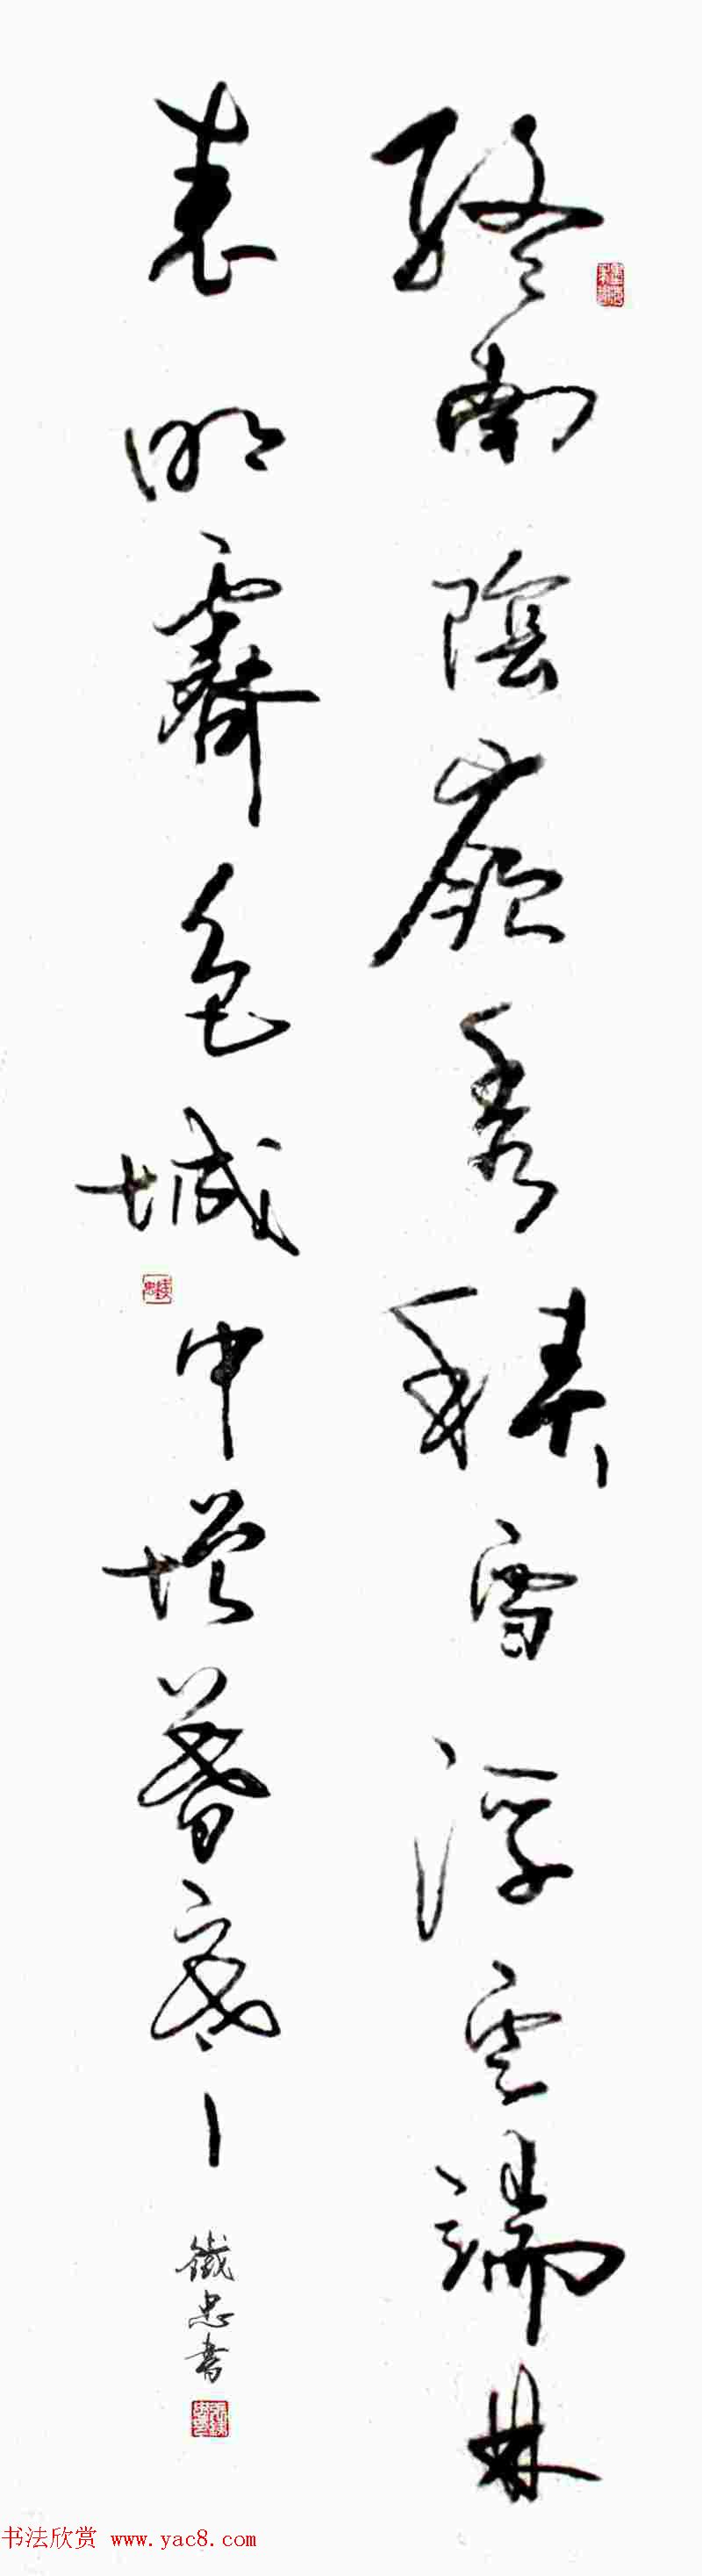 終南陰嶺秀積雪浮雲端林
表明霽色城中增暮寒
鐵忠書
书法欣赏 www.yac8.com